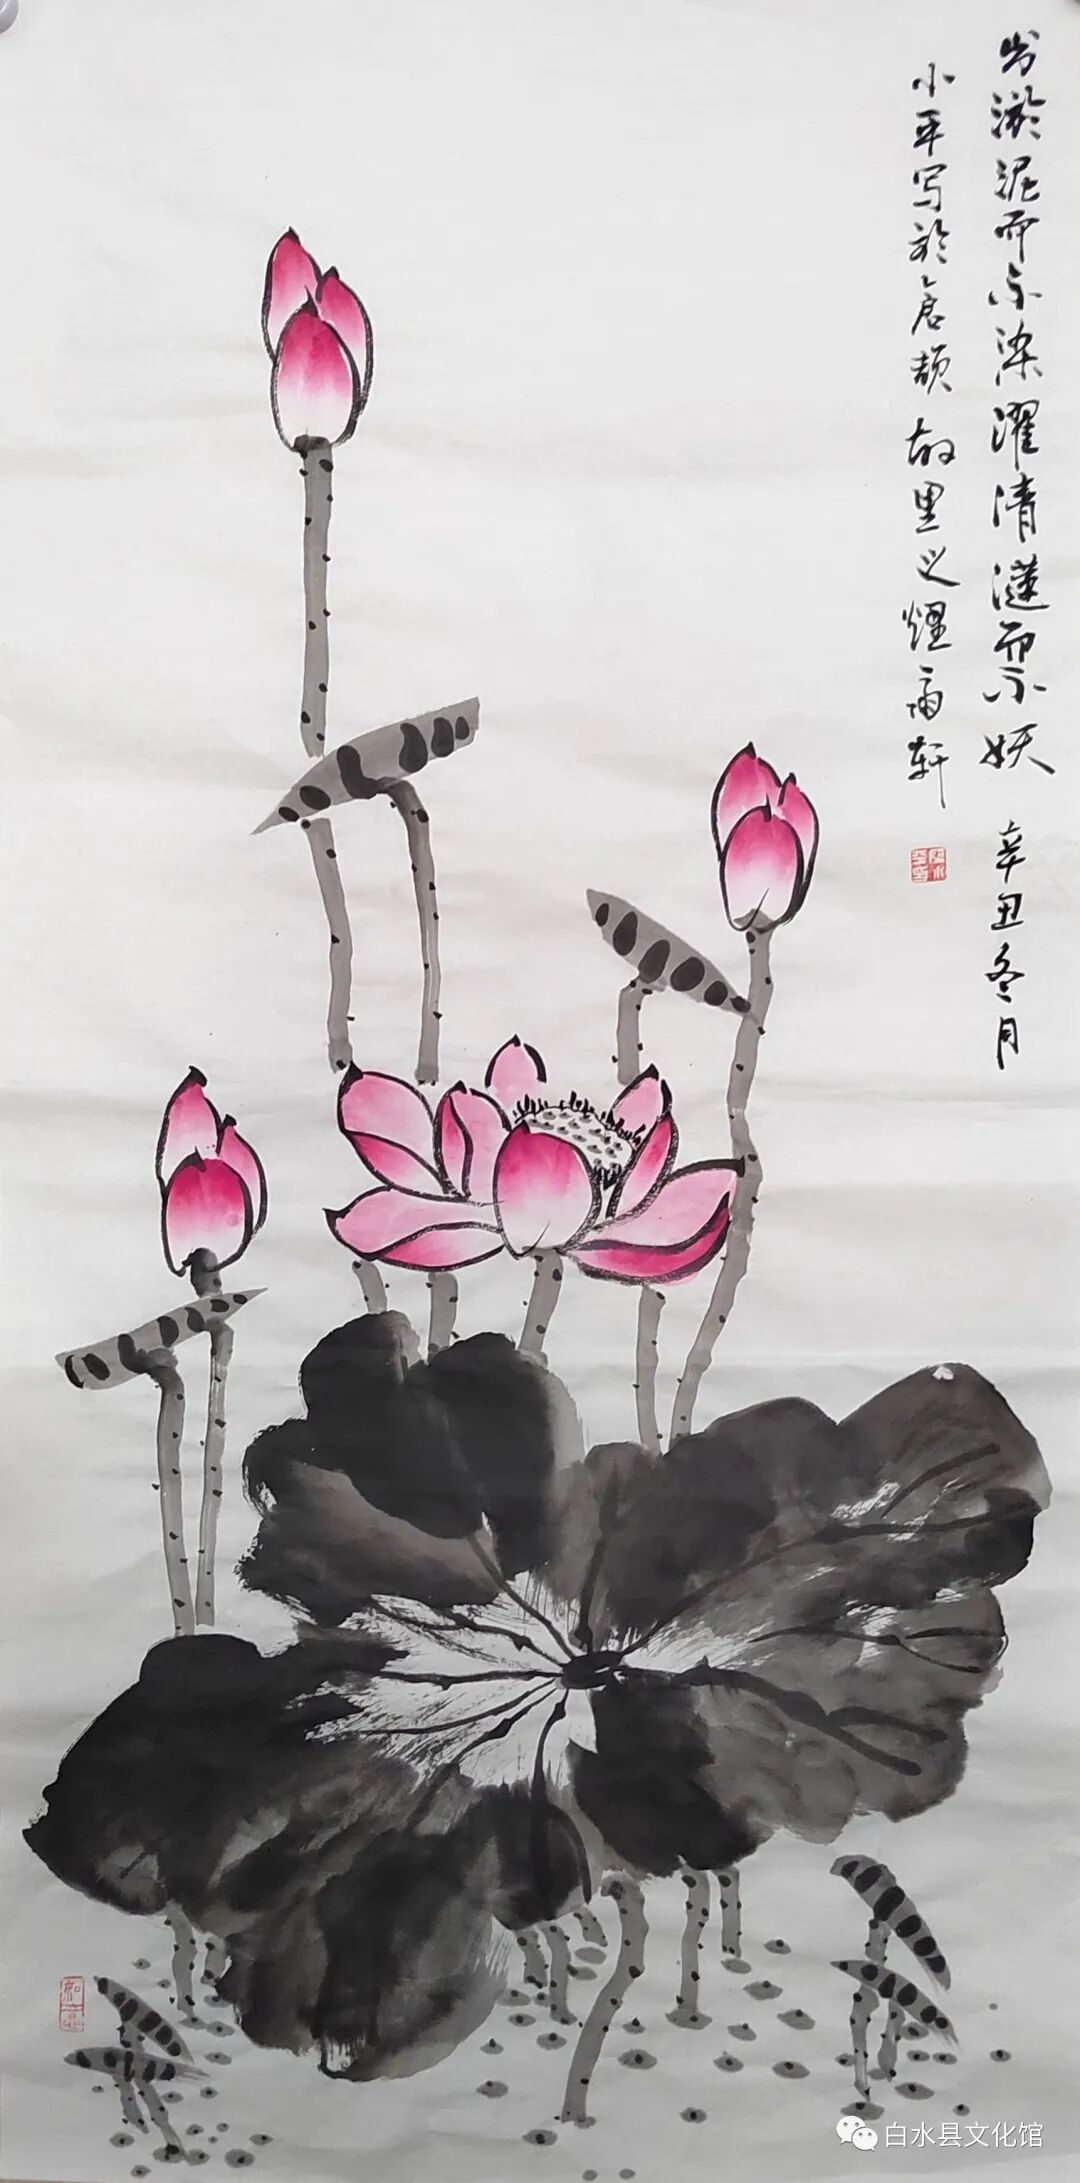 出淤泥而不染濯清漣而不妖 辛丑冬月
小平写於倉颉故里之煙雨轩
白水县文化馆